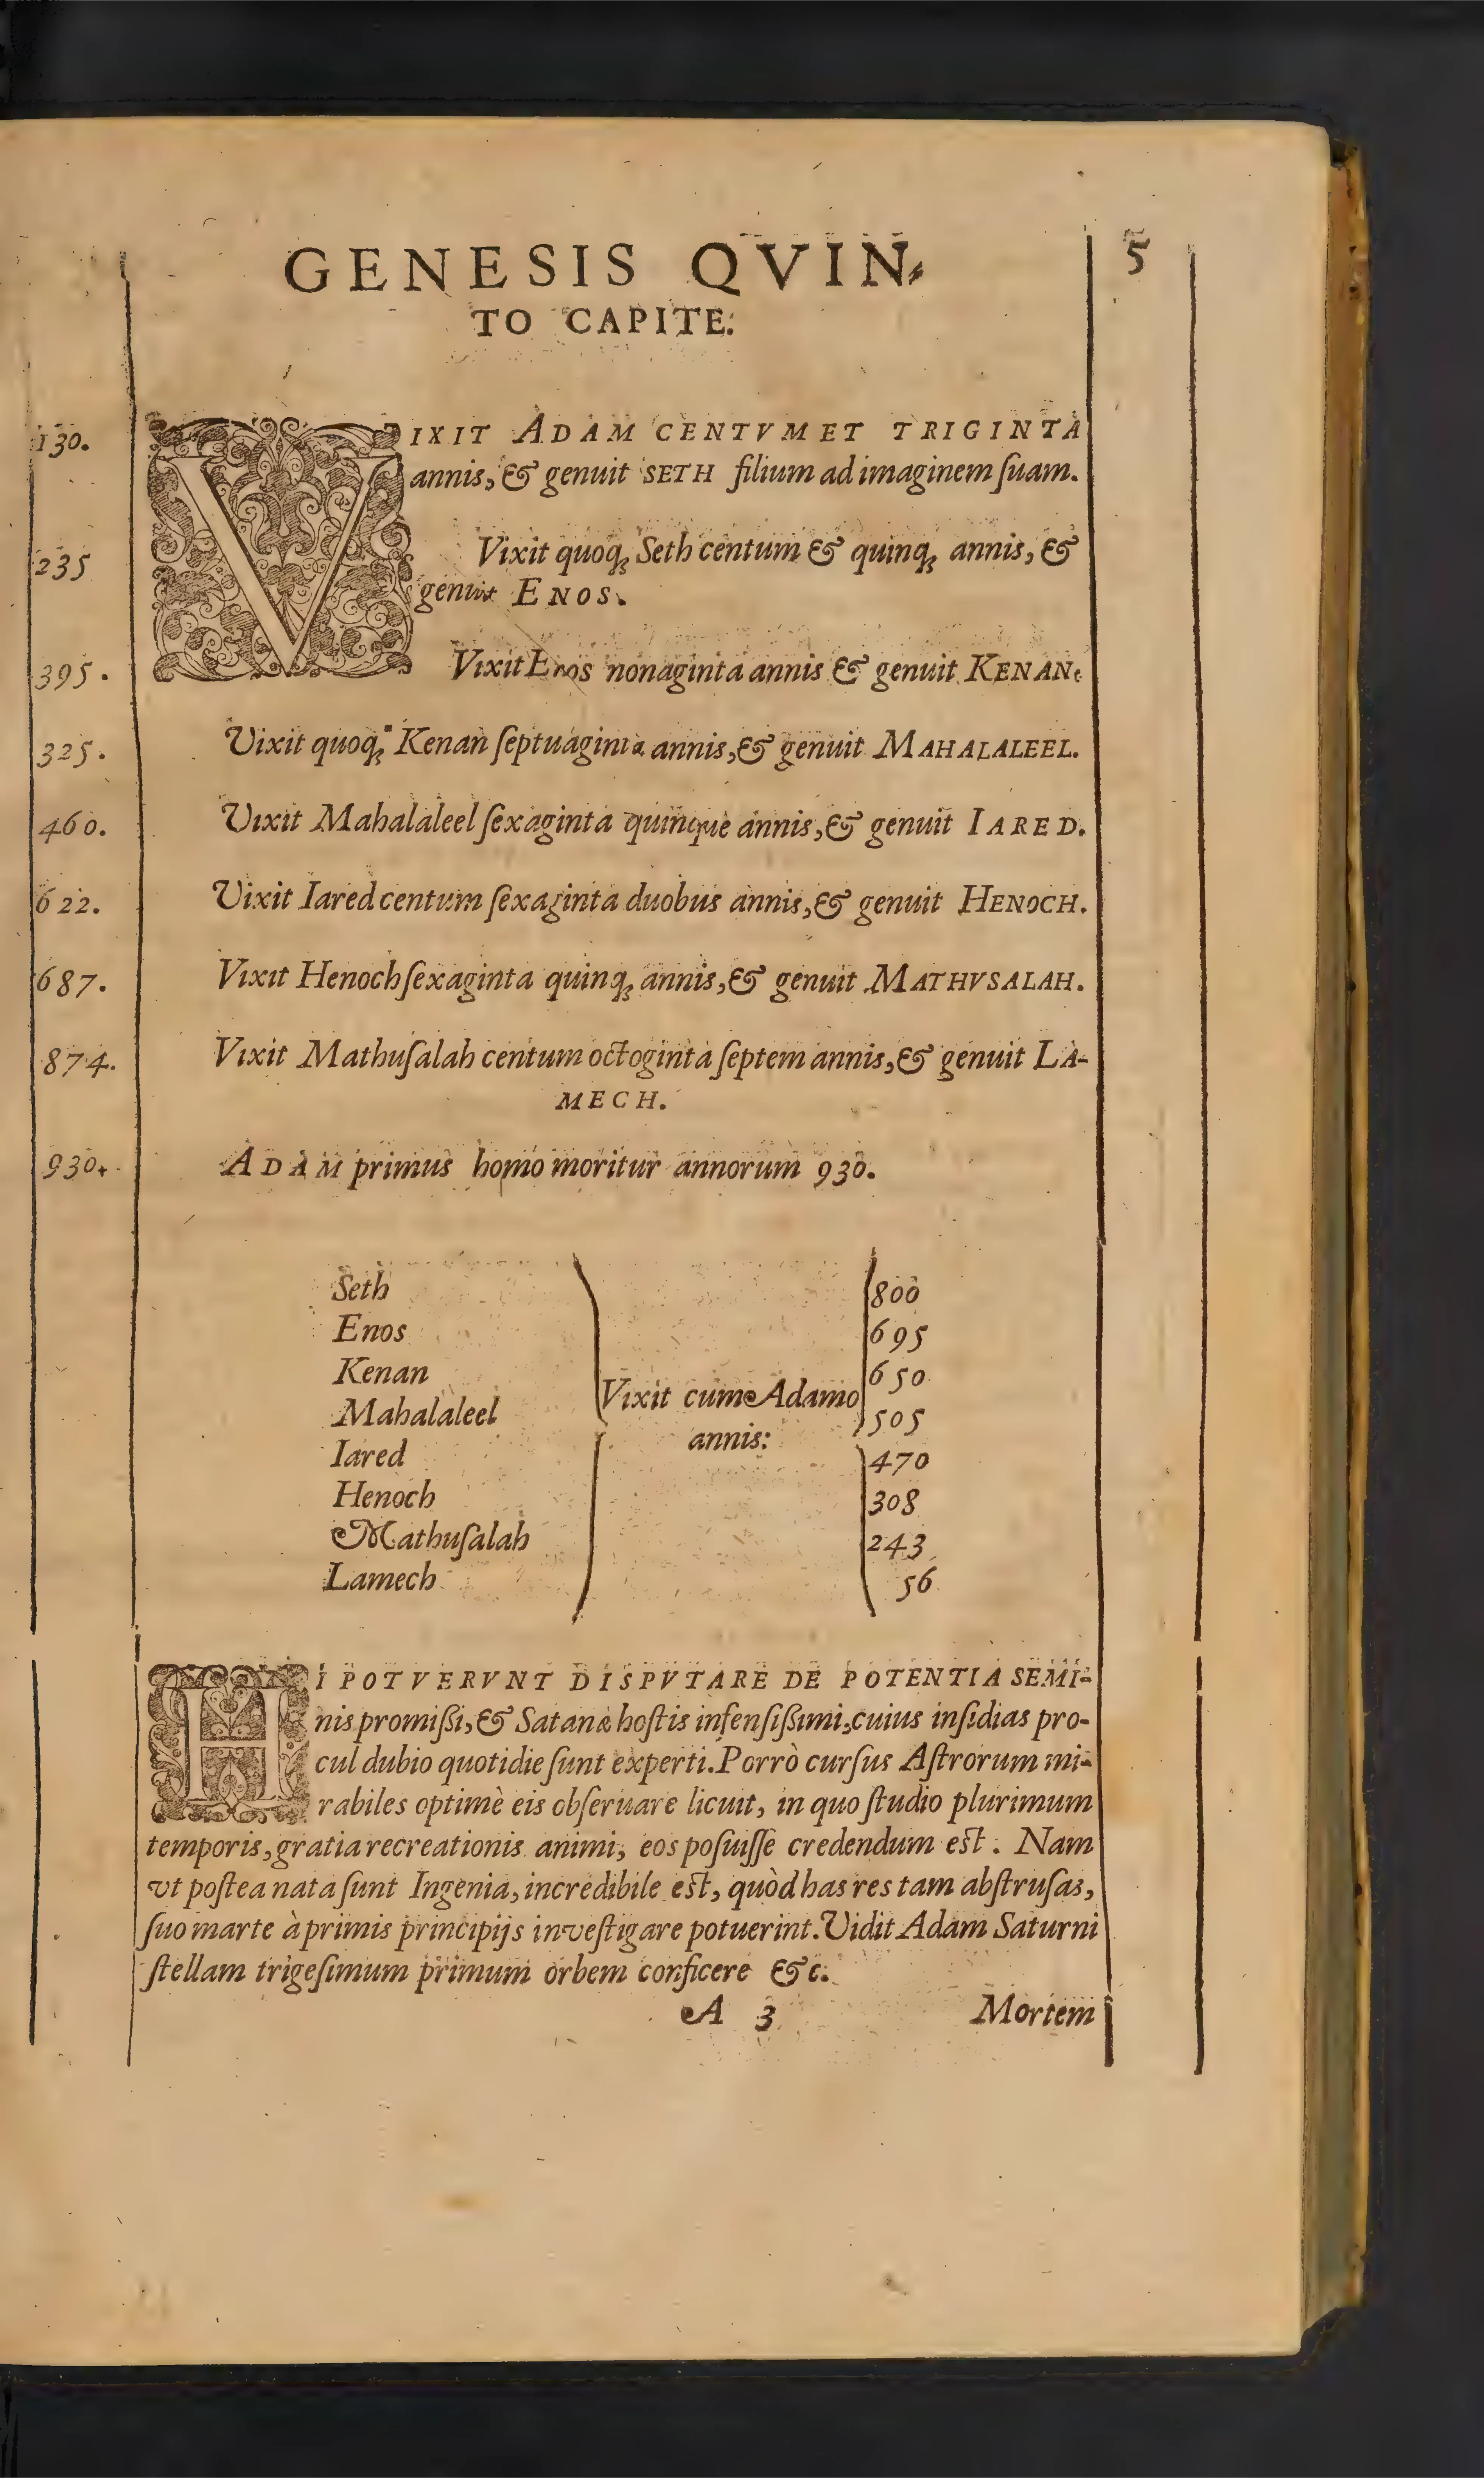 GENESIS QVIN⸗
5
TO CAPITE.
130. VIXIT ADAM CENTVM ET TRIGINTA
annis, & genuit SETH filium ad imaginem ſuam.
235 Vixit quoq; Seth centum & quinq; annis, &
genuit ENOS.
395. Vixit Enos nonaginta annis & genuit KENAN.
325. Vixit quoq; Kenan ſeptuaginta annis, & genuit MAHALALEEL.
460. Vixit Mahalaleel ſexaginta quinque annis, & genuit IARED.
622. Vixit Iared centum ſexaginta duobus annis, & genuit HENOCH.
687. Vixit Henoch ſexaginta quinq; annis, & genuit MATHVSALAH.
874. Vixit Mathuſalah centum octoginta ſeptem annis, & genuit LA-
MECH.
930. ADAM primus homo moritur annorum 930.
Seth 800
Enos 695
Kenan 650
Vixit cum Adamo
Mahalaleel 505
annis:
Iared 470
Henoch 308
Mathuſalah 243
Lamech 56
HI POTVERVNT DISPVTARE DE POTENTIA SEMI-
nis promiſsi, & Satanæ hoſtis infenſiſsimi, cuius inſidias pro-
cul dubio quotidie ſunt experti. Porrò curſus Aſtrorum mi-
rabiles optimè eis obſeruare licuit, in quo ſtudio plurimum
temporis, gratia recreationis animi, eos poſuiſſe credendum eſt. Nam
vt poſtea nata ſunt Ingenia, incredibile eſt, quòd has res tam abſtruſas,
ſuo marte à primis principijs inveſtigare potuerint. Vidit Adam Saturni
ſtellam trigeſimum primum orbem conficere &c.
A 3 Mortem